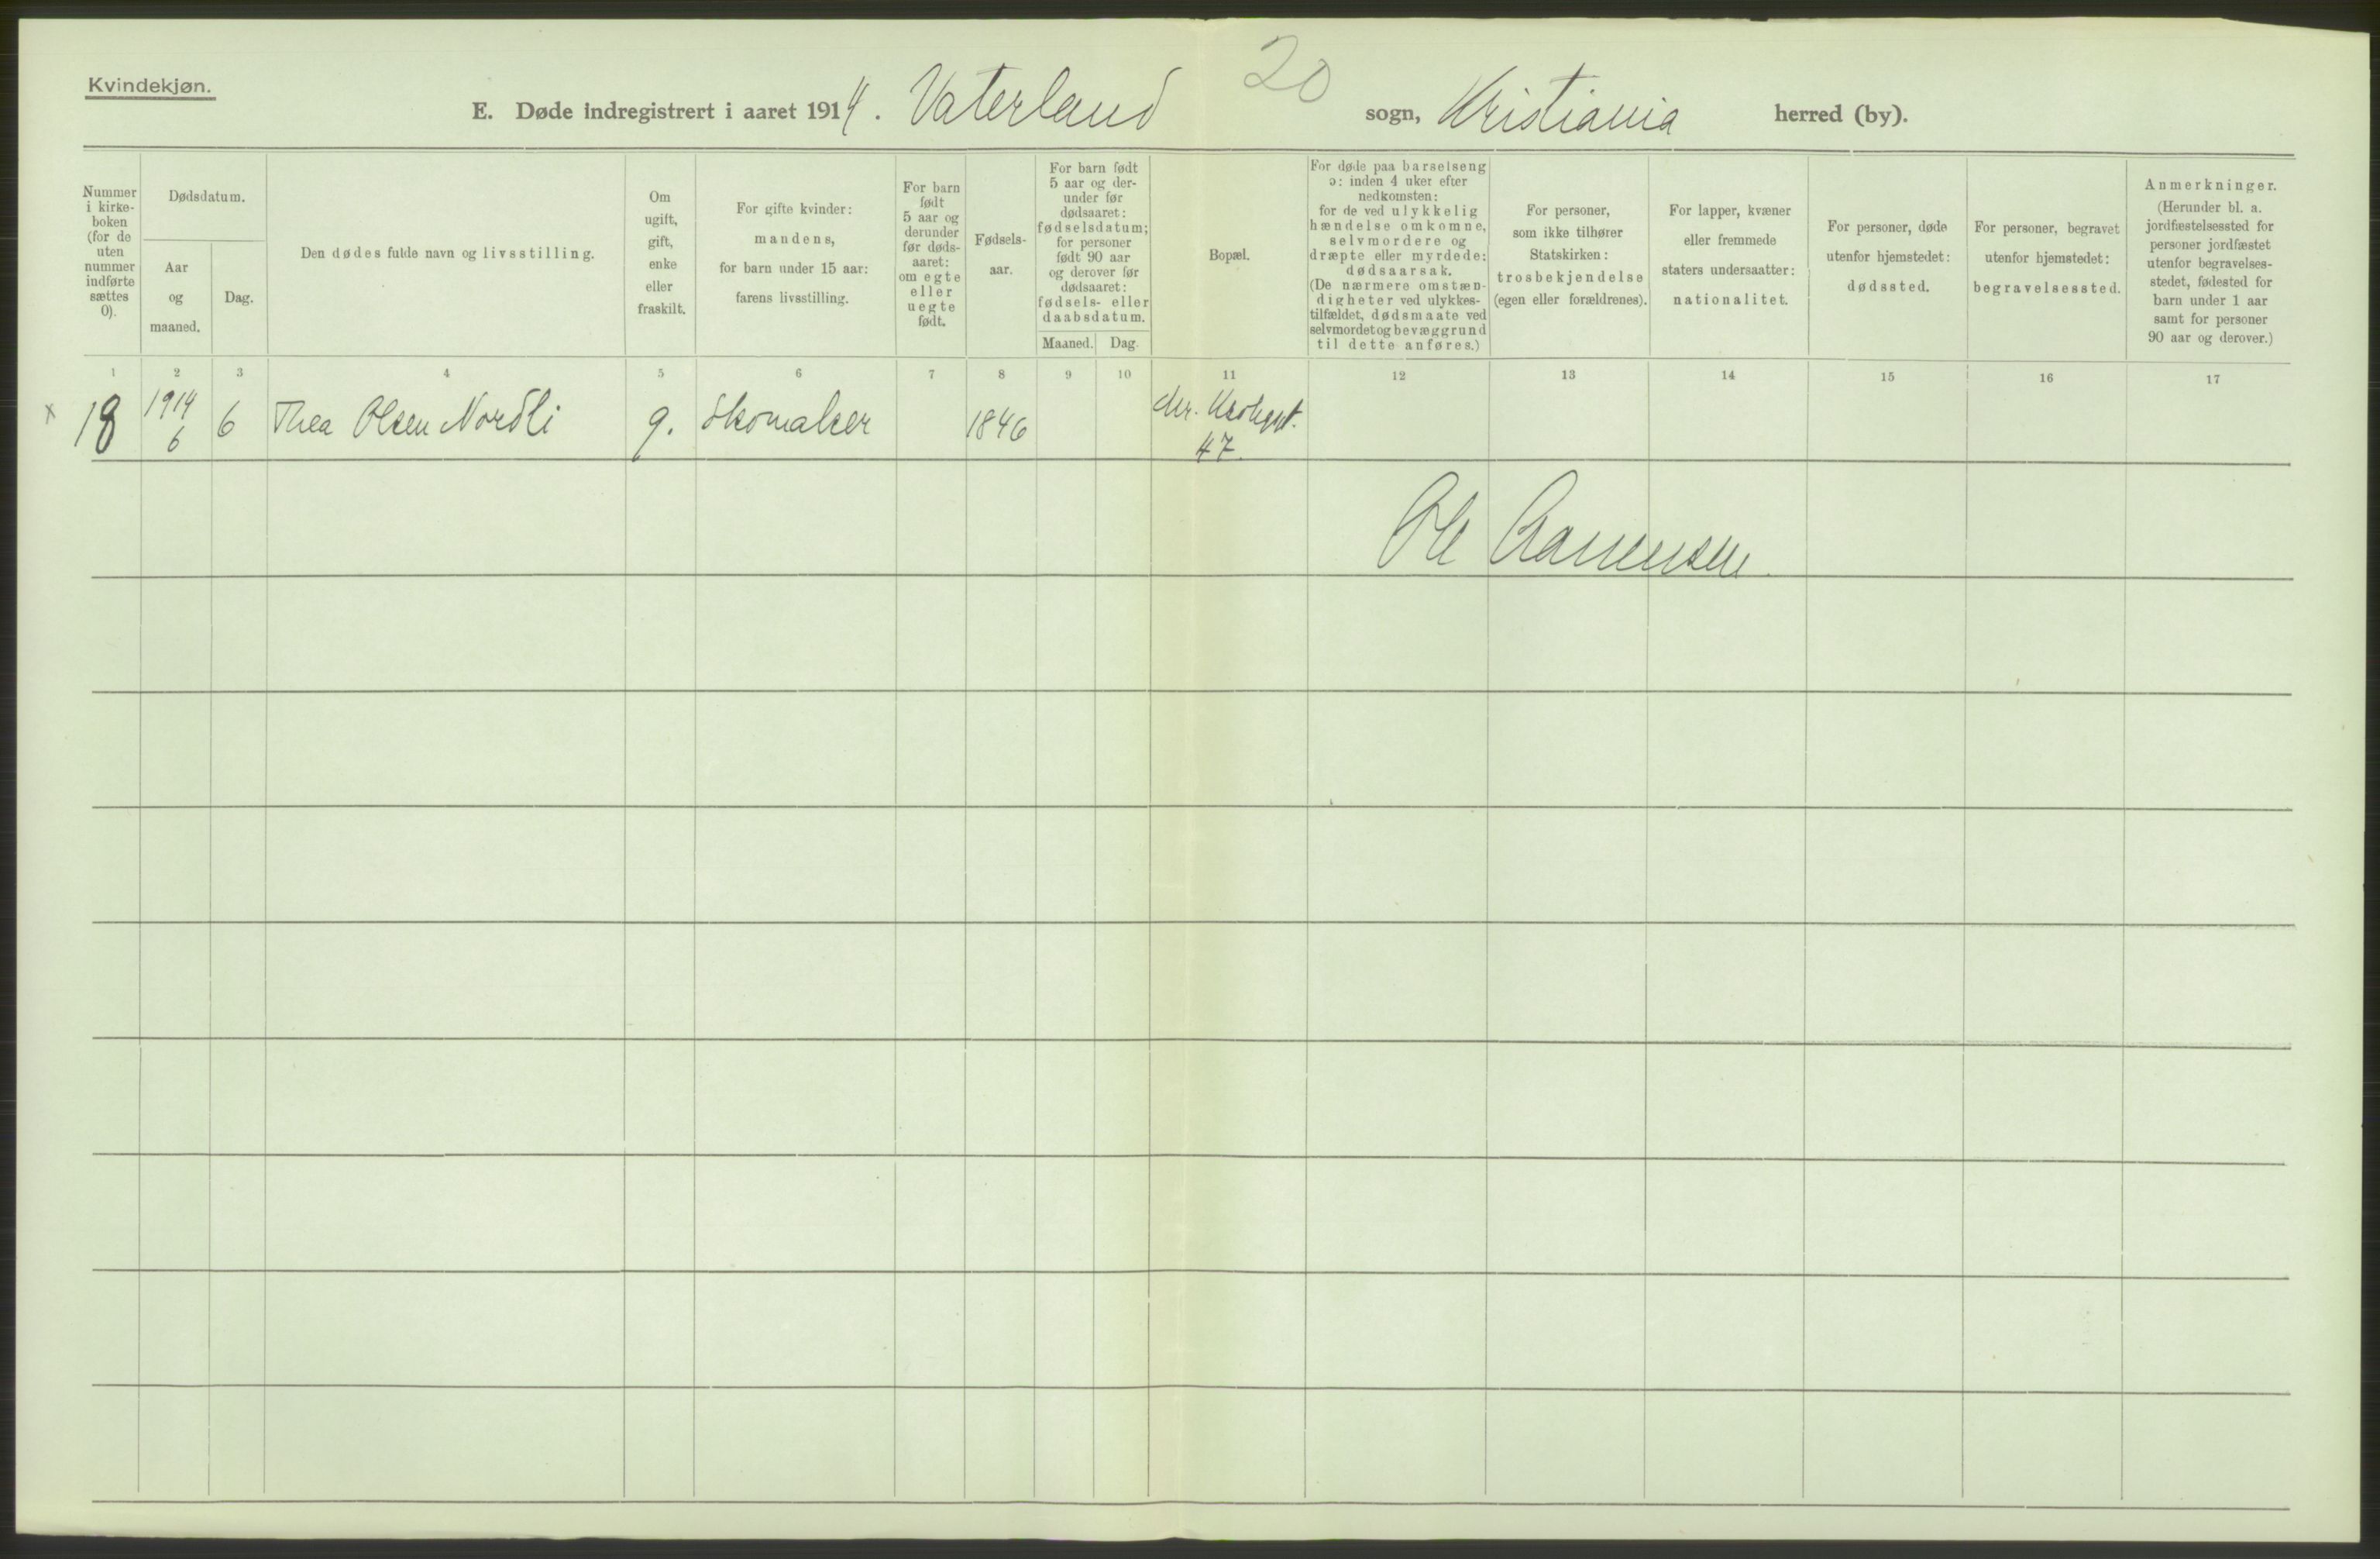 Kvindekjøn.
20
E. Døde indregistrert i aaret 1914. Vaterland sogn, Kristiania herred (by).
Nummer
i kirke-
boken
(for de
uten
nummer
indførte
sættes
0).
Dødsdatum.
Aar
og
maaned.
Dag.
Den dødes fulde navn og livsstilling.
Om
ugift,
gift,
enke
eller
fraskilt.
For gifte kvinder:
mandens,
for barn under 15 aar:
farens livsstilling.
For barn
født
5 aar og
derunder
før døds-
aaret:
om egte
eller
uegte
født.
Fødsels-
aar.
For barn født
5 aar og der-
under før
dødsaaret:
fødselsdatum;
for personer
født 90 aar
og derover før
dødsaaret:
fødsels- eller
daabsdatum.
Maaned. Dag.
Bopæl.
For døde paa barselseng
ɔ: inden 4 uker efter
nedkomsten:
for de ved ulykkelig
hændelse omkomne,
selvmordere og
dræpte eller myrdede:
dødsaarsak.
(De nærmere omstæn-
digheter ved ulykkes-
tilfældet, dødsmaate ved
selvmordet og bevæggrund
til dette anføres.)
For personer,
som ikke tilhører
Statskirken:
trosbekjendelse
(egen eller forældrenes).
For lapper, kvæner
eller fremmede
staters undersaatter:
nationalitet.
For personer, døde
utenfor hjemstedet:
dødssted.
For personer, begravet
utenfor hjemstedet:
begravelsessted.
Anmerkninger.
(Herunder bl. a.
jordfæstelsessted for
personer jordfæstet
utenfor begravelses-
stedet, fødested for
barn under 1 aar
samt for personer
90 aar og derover.)
1 2 3 4 5 6 7 8 9 10 11 12 13 14 15 16 17
x 18 1914 6 6 Thea Olsen Nordli g. Skomaker 1846 Chr. Krohgst.
47.
Ole